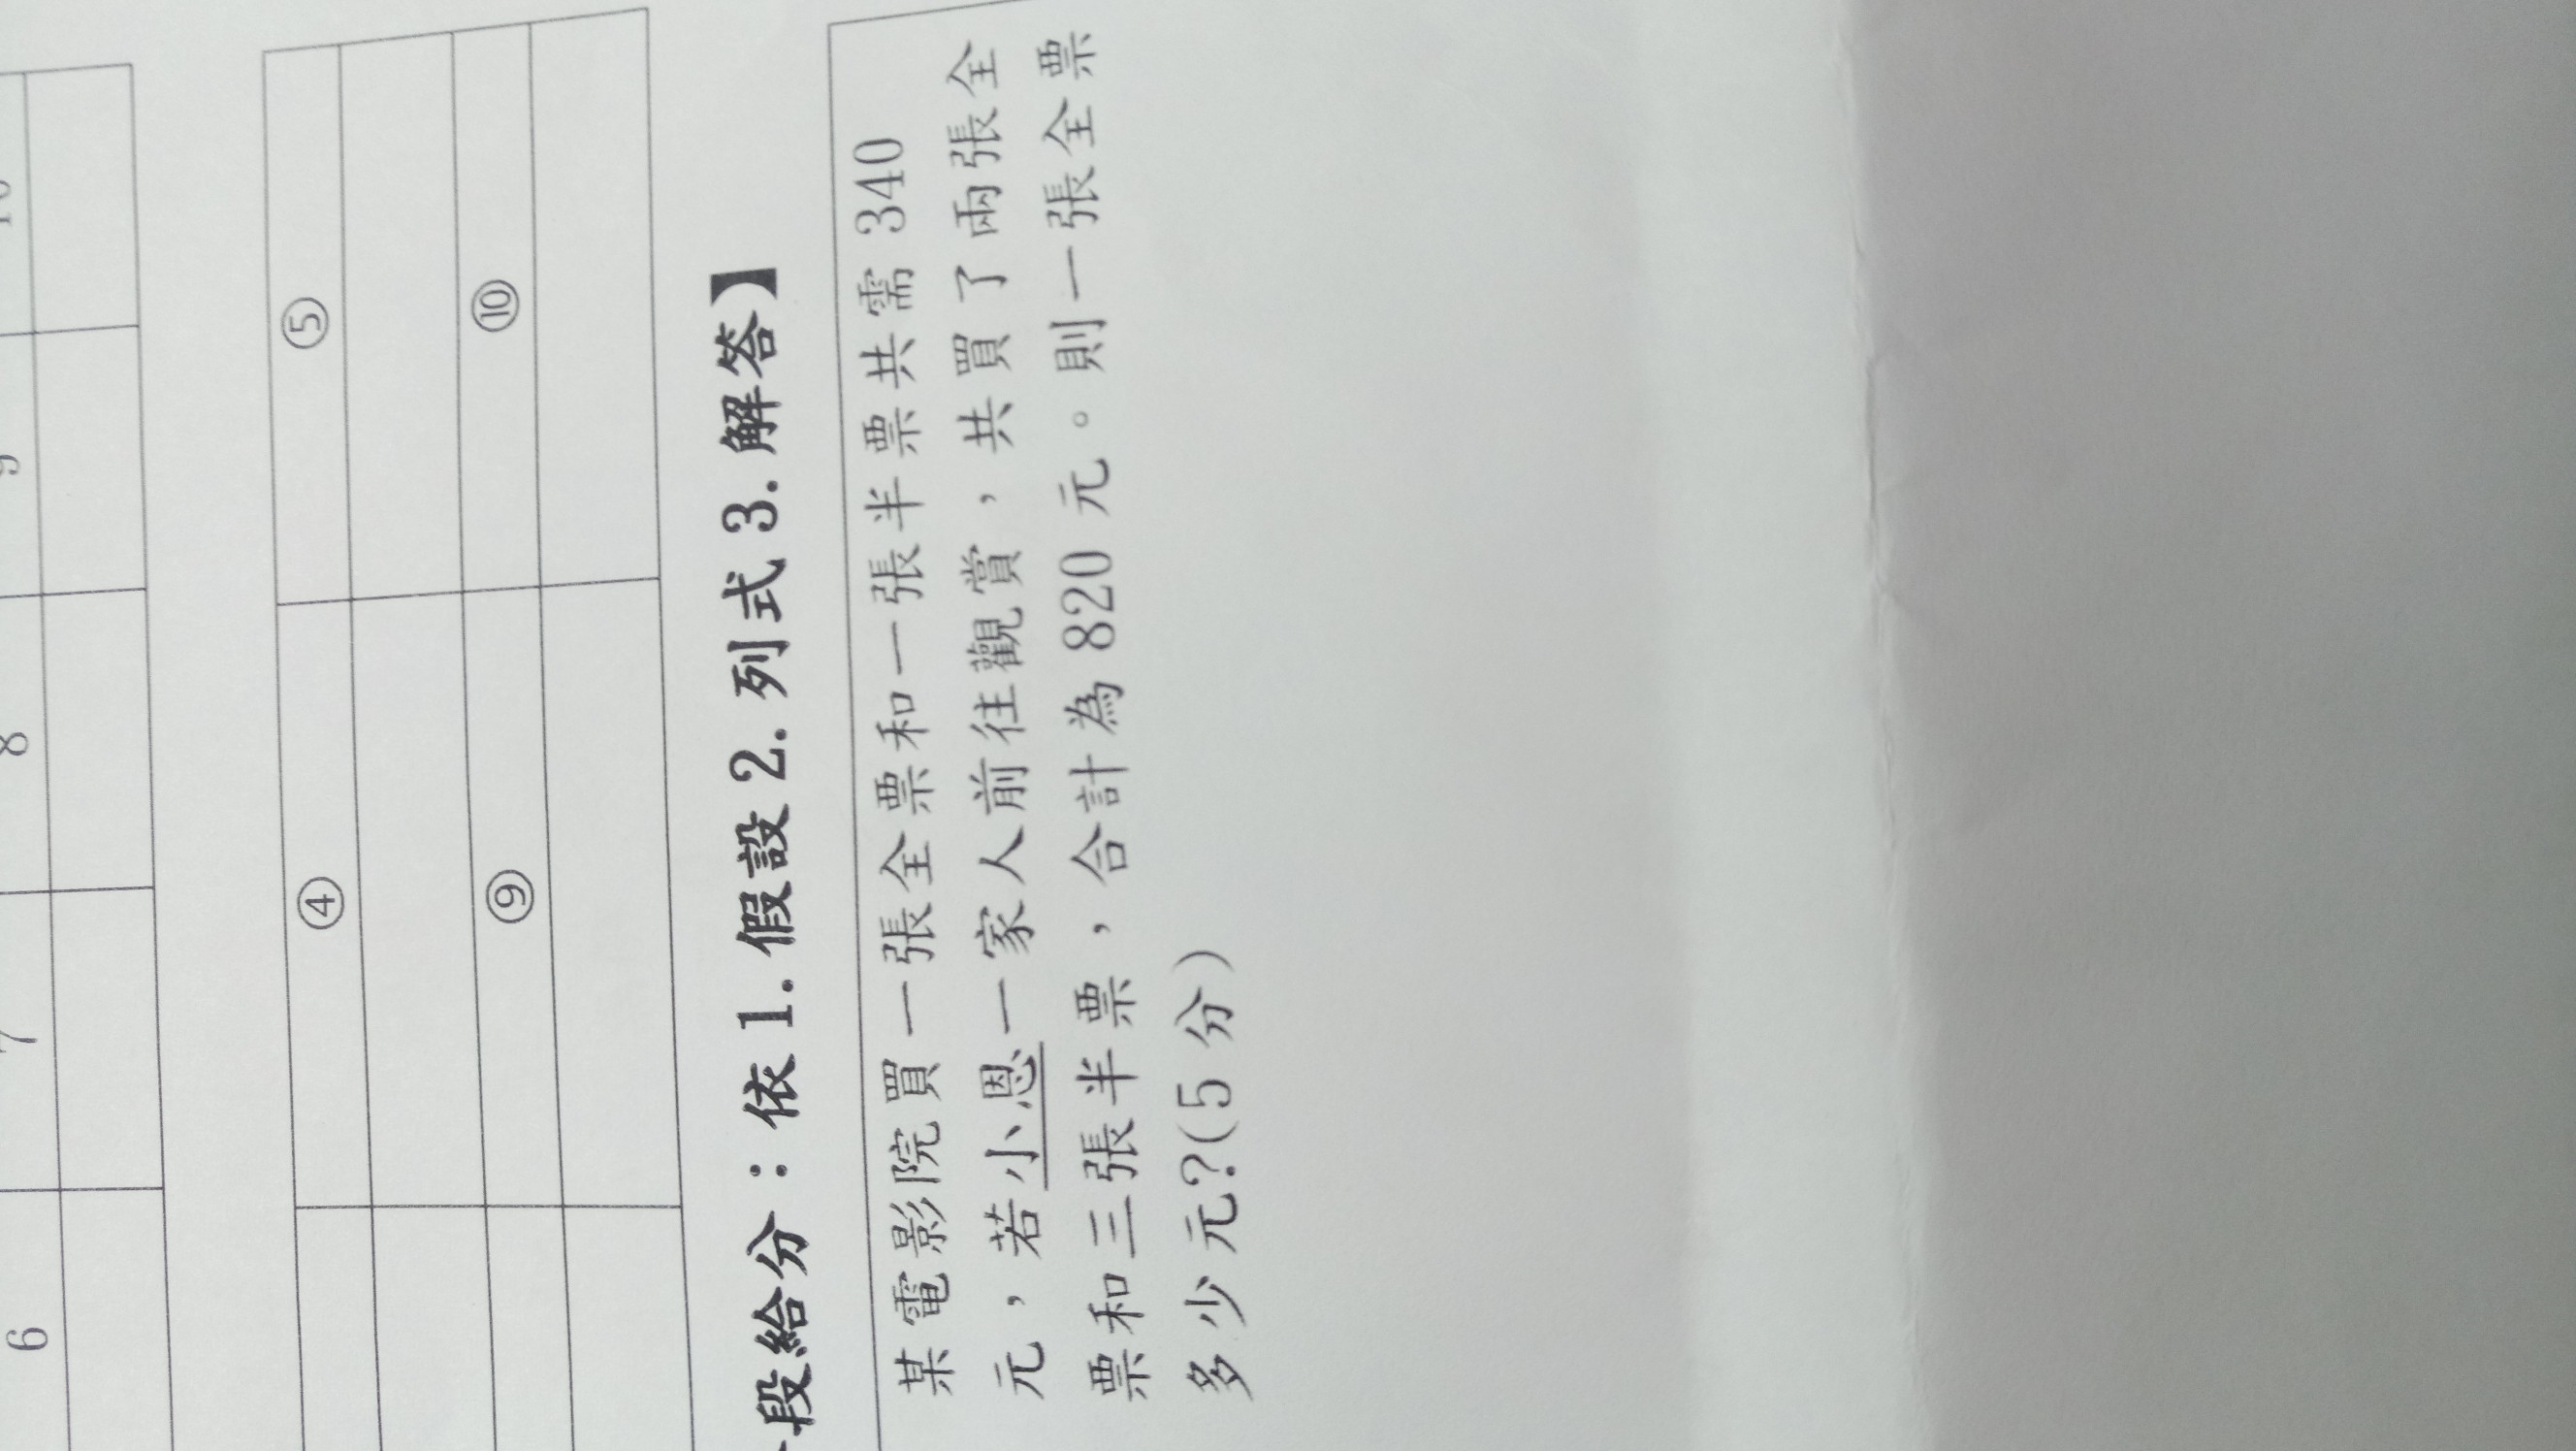 6 7 8 9
④ ⑤
⑨ ⑩
段給分：依 1. 假設 2. 列式 3. 解答】
某電影院買一張全票和一張半票共需 340
元，若小恩一家人前往觀賞，共買了兩張全
票和三張半票，合計為 820 元。則一張全票
多少元?(5 分)